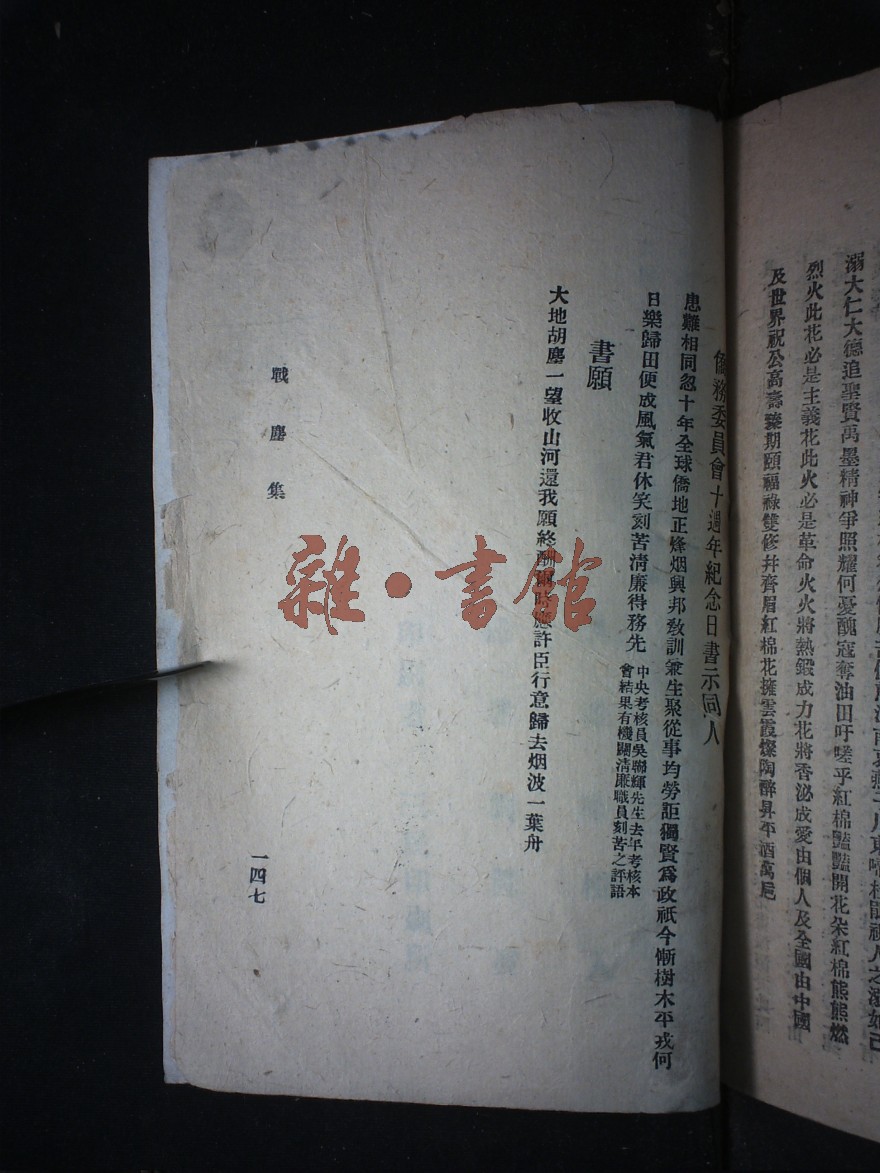 溺大仁大德追聖賢萬墨精神爭照耀何憂醜寇奪油田吁嗟乎紅棉豔豔開花朵紅棉熊熊燃
烈火此花必是主義花此火必是革命火火將熱鍛成力花將香泌成愛由個人及全國由中國
及世界祝公高壽臻期頤福祿雙修并齊眉紅棉花擁雲霞燦陶醉昇平酒萬巵
僑務委員會十週年紀念日書示同人
患難相同忽十年全球僑地正烽烟興邦敎訓兼生聚從事均勞詎獨賢爲政祇今慚樹木平戎何
日樂歸田便成風氣君休笑刻苦淸廉待務先
中央考核員吳聯輝先生去年考核本
會結果有機關淸廉職員刻苦之評語
書願
大地胡塵一望收山河還我願終酬爾時應許臣行意歸去烟波一葉舟
戰塵集
一四七
雜·書館